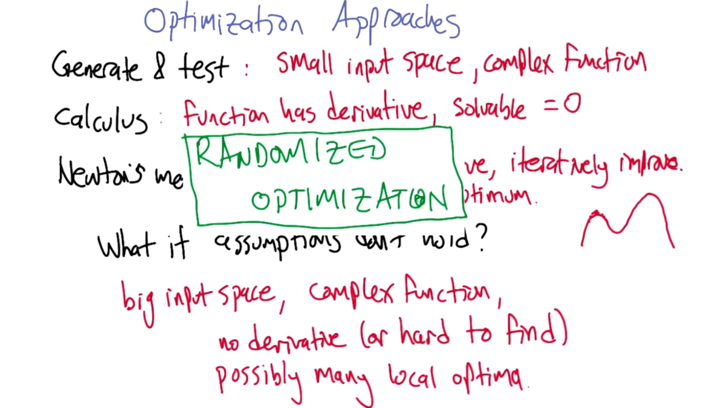 Optimization Approaches
Generate & test: small input space, complex function
Calculus: function has derivative, solvable = 0
Newton's me ve, iteratively improve.
RANDOMIZED
OPTIMIZATION
ptimum.
What if assumptions don't hold?
big input space, complex function,
no derivative (or hard to find)
possibly many local optima.